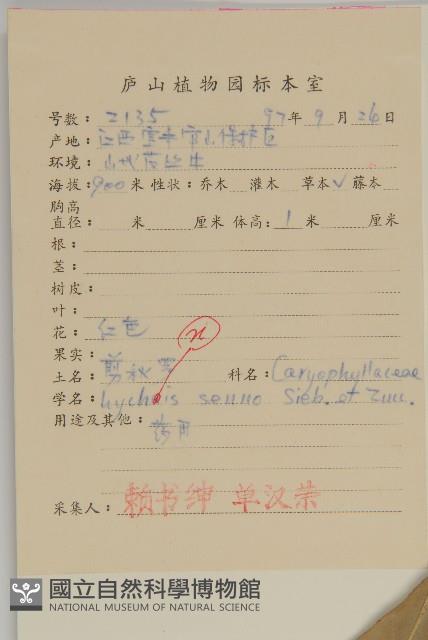 庐山植物园标本室
号数: 2135 97年9月26日
产地: 江西宜丰官山保护区
环境: 山地草丛中
海拔: 900米 性状: 乔木 灌木 草本✓ 藤本
胸高
直径: 米 厘米 体高: 1 米 厘米
根:
茎:
树皮:
叶:
花: 红色
果实:
土名: 剪秋罗 科名: Caryophyllaceae
学名: Lychnis senno Sieb. et Zuu.
用途及其他: 药用
采集人: 赖书绅 单汉荣
國立自然科學博物館
NATIONAL MUSEUM OF NATURAL SCIENCE